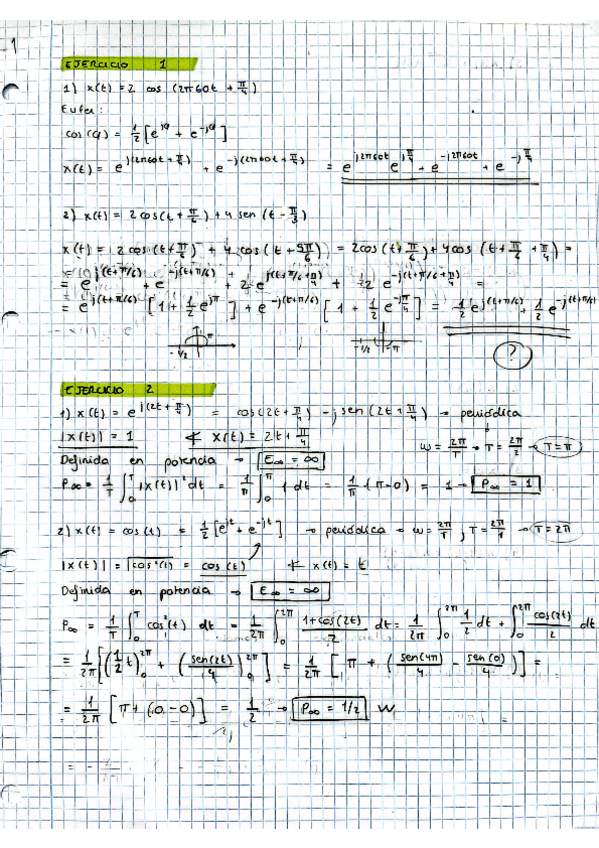 1
EJERCICIO 1
1) x(t) = 2 cos (2π60t + π/4)
Euler:
cos(φ) = 1/2 [e^jφ + e^-jφ]
x(t) = e^j(2π60t + π/4) + e^-j(2π60t + π/4) = e^j2π60t e^jπ/4 + e^-j2π60t + e^-jπ/4
2) x(t) = 2cos(t + π/6) + 4 sen (t - π/3)
x(t) = 2 cos (t + π/6) + 4 cos (t + 5π/6) = 2cos(t + π/6) + 4cos (t + π/6 + π/4) =
= e^j(t+π/6) + e^-j(t+π/6) + 2 e^j(t+π/6+π/4) + 2 e^-j(t+π/6+π/4) =
= e^j(t+π/6) [1 + 1/2 e^jπ] + e^-j(t+π/6) [1 + 1/2 e^-jπ/4] = 1/2 e^j(t+π/6) + 1/2 e^-j(t+π/6)
-1/2 π -1/2 -π
?
EJERCICIO 2
1) x(t) = e^j(2t + π/4) = cos(2t + π/4) - j sen(2t + π/4) → periódica
|x(t)| = 1 ∢ x(t) = 2t + π/4 ω = 2π/T → T = 2π/2 → T = π
Definida en potencia → E∞ = ∞
P∞ = 1/T ∫₀^T |x(t)|² dt = 1/π ∫₀^π 1 dt = 1/π · (π-0) = 1 → P∞ = 1
2) x(t) = cos(t) = 1/2 [e^jt + e^-jt] → periódica → ω = 2π/T ; T = 2π/1 → T = 2π
|x(t)| = √cos²(t) = cos(t) ∢ x(t) = t
Definida en potencia → E∞ = ∞
P∞ = 1/T ∫₀^T cos²(t) dt = 1/2π ∫₀^2π 1+cos(2t)/2 dt = 1/2π ∫₀^2π 1/2 dt + ∫₀^2π cos(2t)/2 dt
= 1/2π [(1/2 t)₀^2π + (sen(2t)/4)₀^2π] = 1/2π [π + (sen(4π)/4 - sen(0)/4)] =
= 1/2π [π + (0-0)] = 1/2 → P∞ = 1/2 W